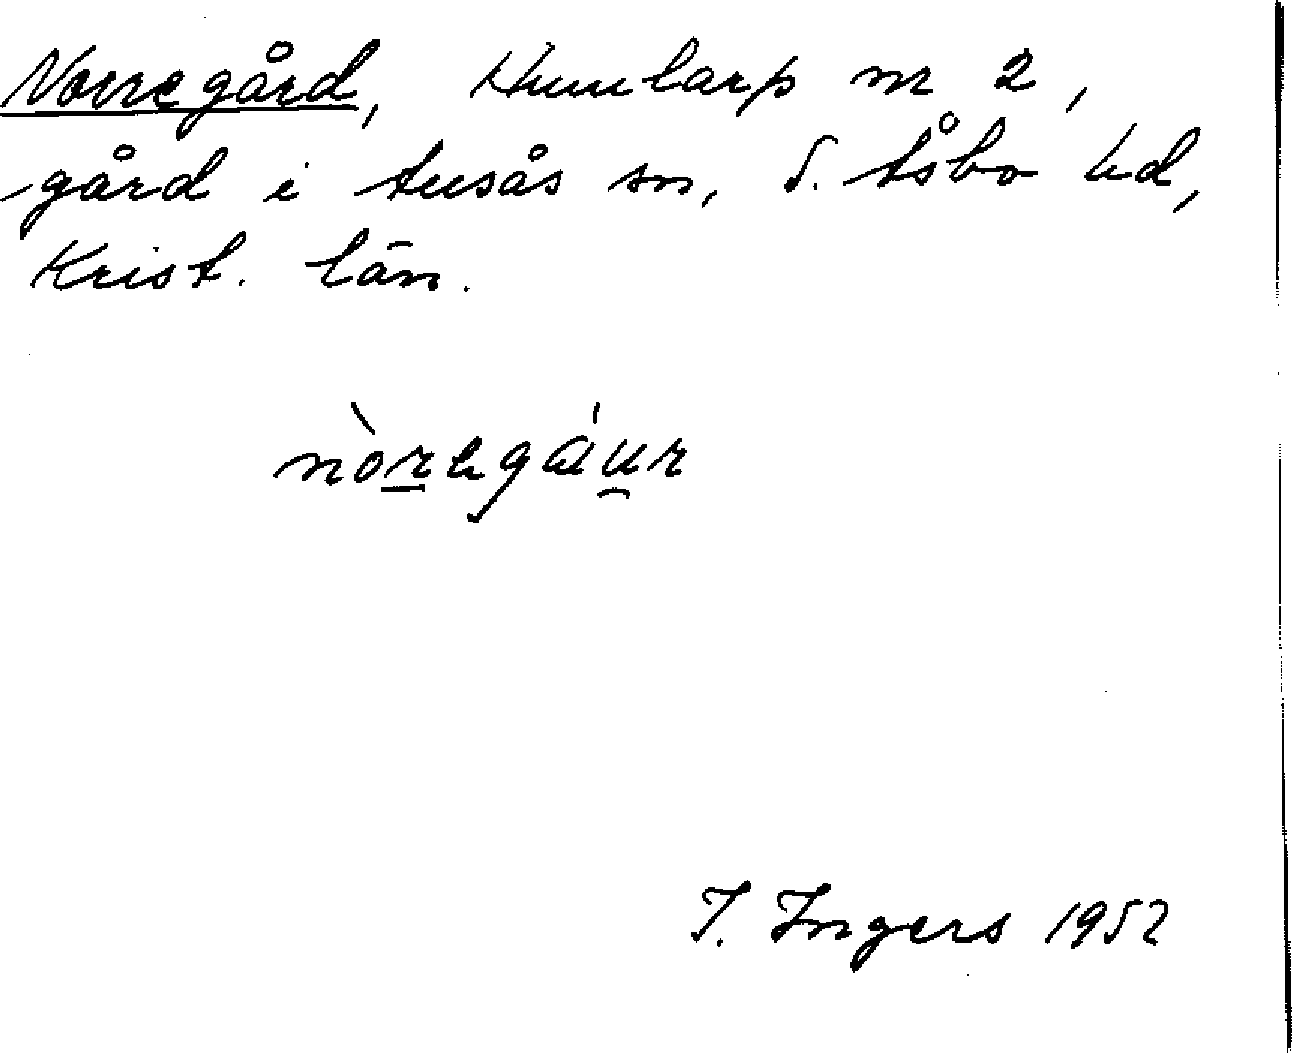 Norregård, Humlarp nr 2,
gård i Ausås sn, S. Åsbo hd,
Krist. län.
nòregáur
I. Ingers 1952